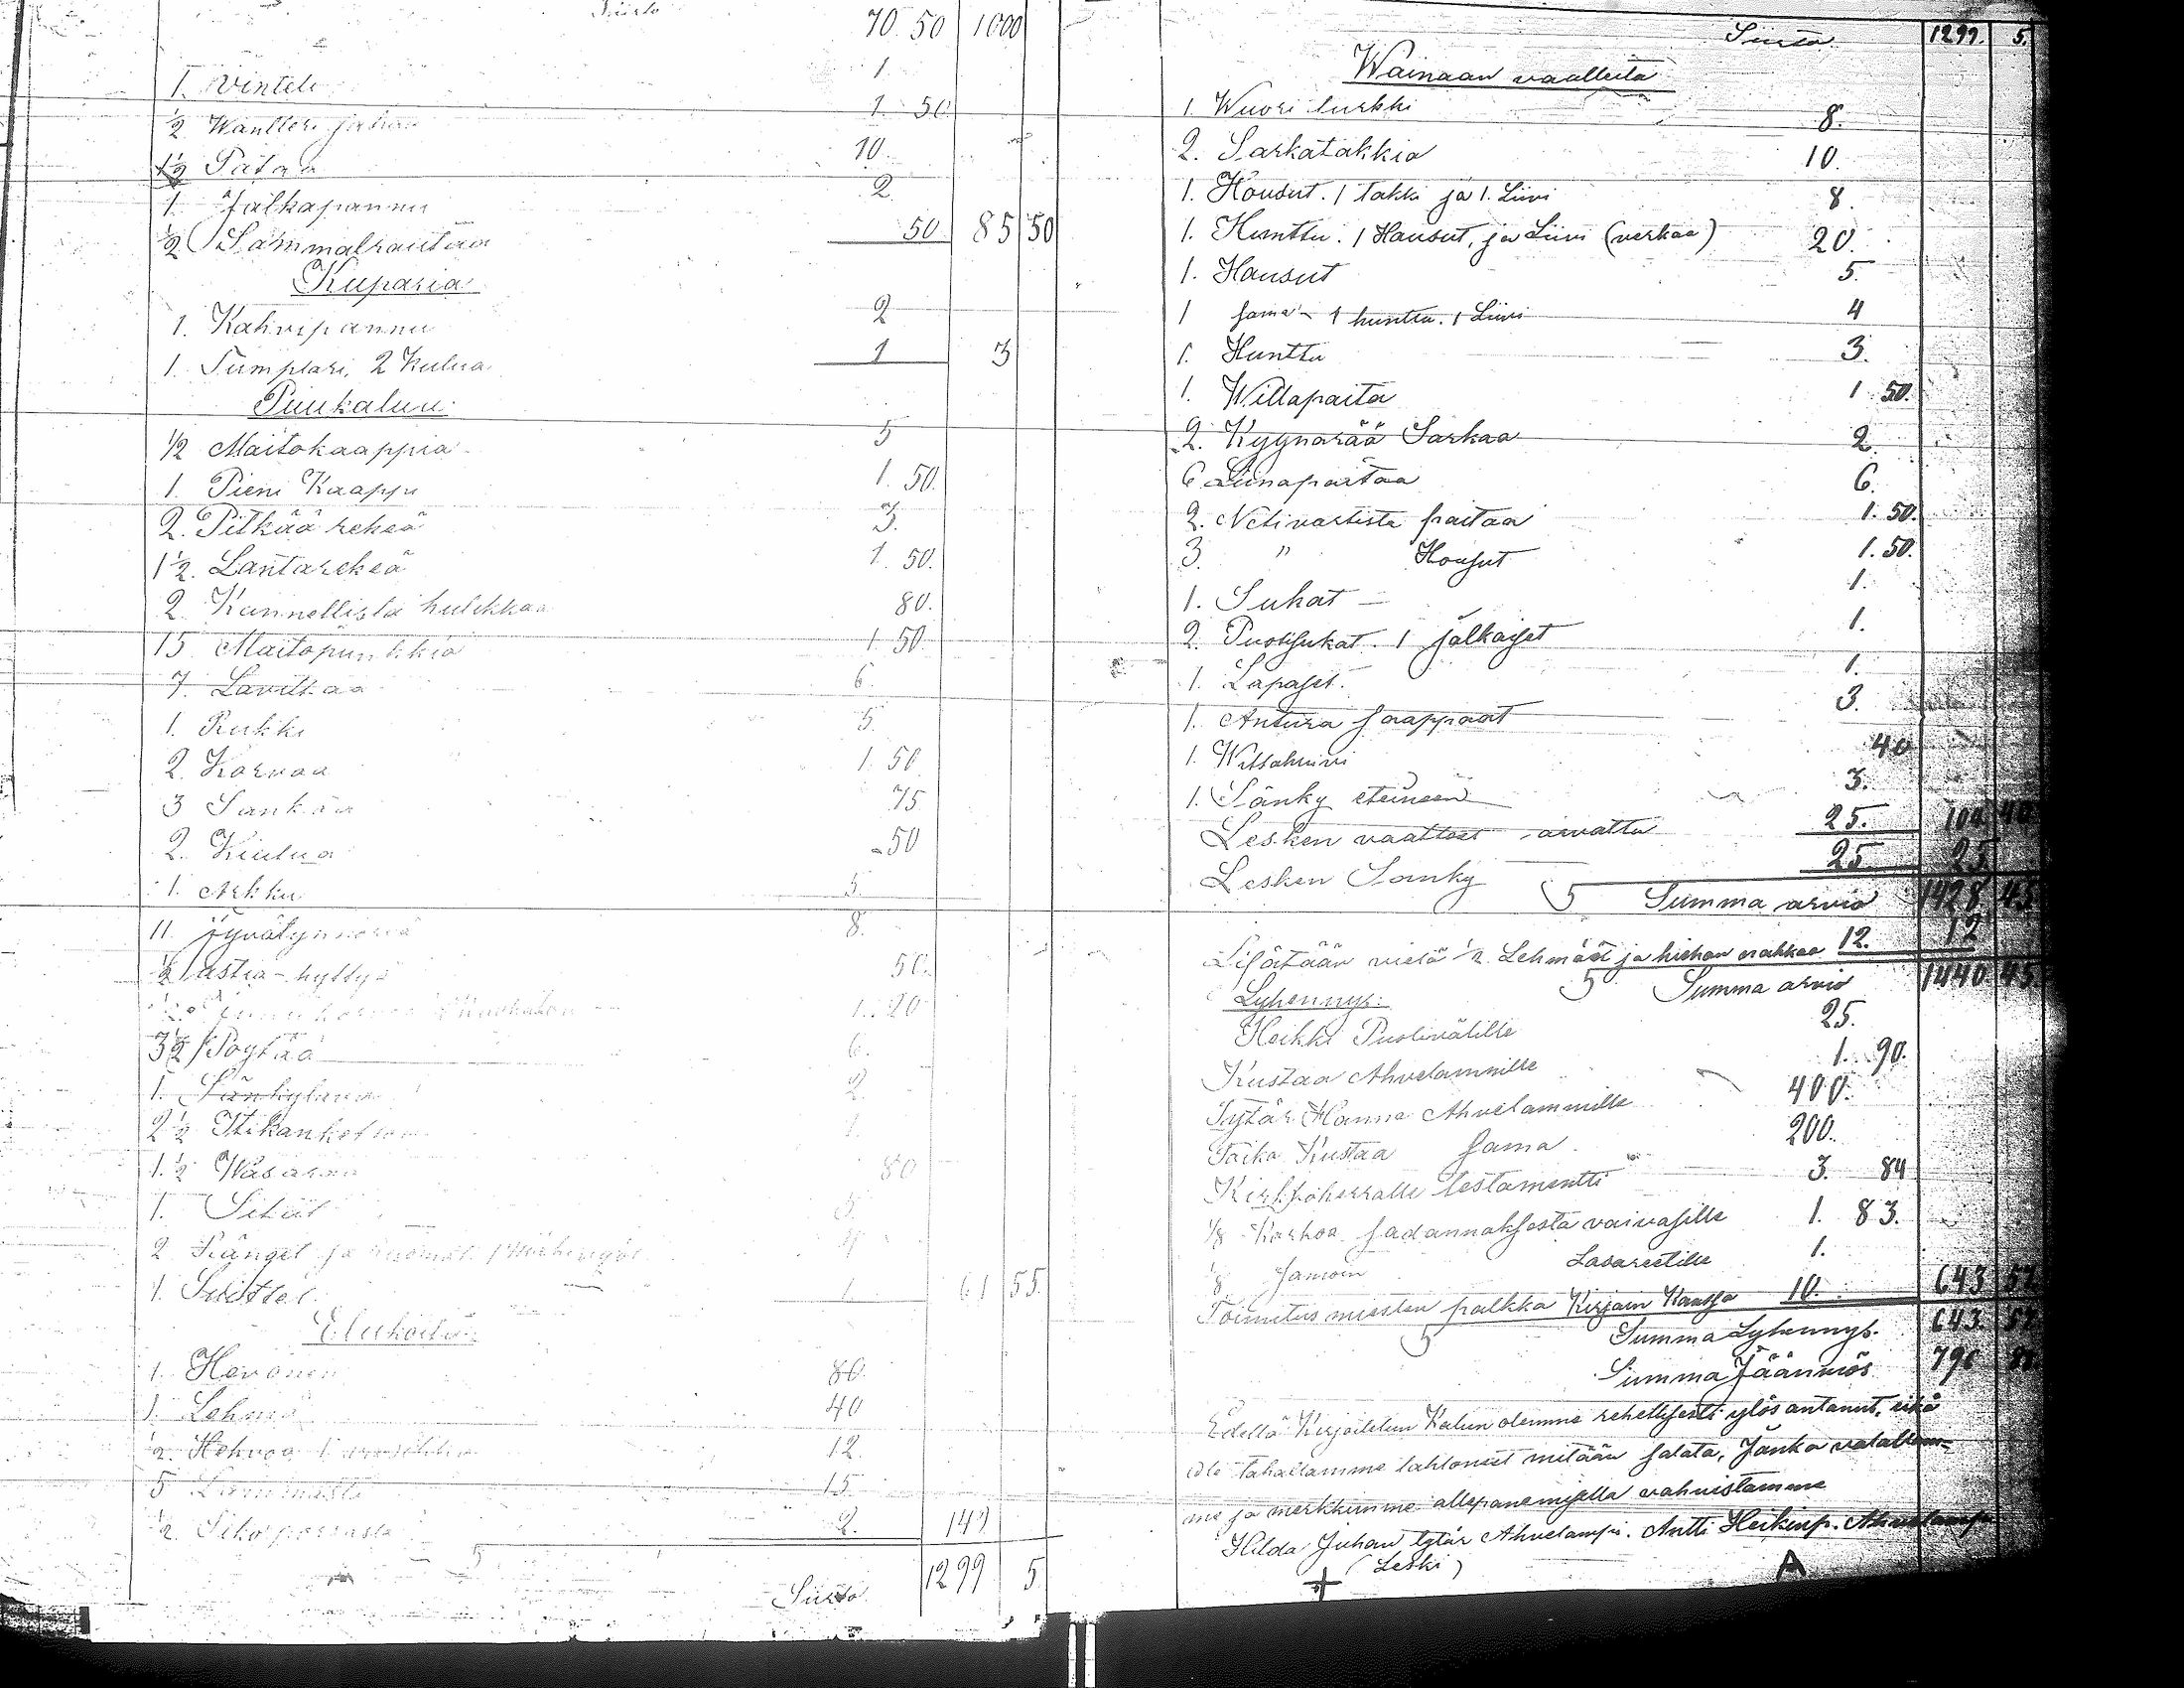 Siirto 70. 50 1000
1. Vinteli 1
½ Wantteri 1. 50.
1½ Pataa 10.
1. Jalkapannu 2
½ Sammalrautaa 50. 85 50
Kuparia
1. Kahvipannu 2
1. Tumplari, 2 Kulua 1 3
Puukaluu.
½ Maitokaappia 5
1. Pieni Kaappi 1. 50.
2. Pitkää rekeä 3.
1½. Lantarekeä 1. 50.
2. Kannellista hulikkaa 80.
15 Maitopunkkia 1 50.
7. Lavittaa 6.
1. Rukki 5.
2. Korvaa 1. 50
3 Sankoa 75
2. Kiulua -50
1. Arkku 5.
11. Jyvätynnöriä 8.
½ astia-hyllyä 50.
1. 20
3½ Pöytää 6.
1. Sänkylava 2
2½ Itikanketton
1.½ Wasaraa 80
1. Silat
2 Länget ja
1. Suittet 1 61 55.
Elukoita.
1. Hevonen 80.
1. Lehmä 40
½. Hehvoa 12
5 Lammasta 15
½. Sikoporsasta 2. 149
Siirto 1299 5
Siirto 1299. 5.
Wainaan vaatteita
1. Wuori turkki 8.
2. Sarkatakkia 10.
1. Housut. 1 takki ja 1. Liivi 8.
1. Hunttu. 1 Hausut, ja Liivi (verkaa) 20.
1. Hausut 5.
1 sama - 1 hunttu. 1 Liivi 4
1. Hunttu 3.
1. Willapaita 1 50.
2. Kyynärää Sarkaa 2
6 Liinapaitaa 6.
2. Netivartista paitaa 1. 50.
3. " Housut 1. 50.
1. Sukat — 1.
2. Puolisukat. 1 jalkaiset 1.
1. Lapaset. 1.
1. Antura saappaat 3.
1. Willahuivi 40
1. Sänky etuineen 3.
Lesken vaatteet arvattu 25. 104. 40
Lesken Sänky 25 25
Summa arvio 1428 45
Lisätään vielä ½. Lehmäst ja hiehon nahkaa 12. 12
Summa arvio 1440 45
Lyhennys.
Heikki Puolivälille 25.
Kustaa Ahvelammille 1. 90.
Tytär Hanna Ahvelammille 400.
Taika Kustaa sama 200.
Kirkkoherralle testamentti 3. 84
1/8 Karhoa sadannaksesta vaivasille 1. 83.
1/8 samoin Lasareetille 1.
Toimitus miesten palkka Kirjain Kanssa 10. 643 57
Summa Lyhennys. 643. 57
Summa Jäännös 796 88
Edellä Kirjoitetun Kalun olemme rehellisesti ylös antanut, eikä
ole tahallamme tahtoneet mitään salata, Jonka valallam-
me ja merkkimme allepanemisella vahvistamme
Hilda Juhan tytär Ahvelampi. Antti Heikinp. Ahvelampi
(Leski)
+ A